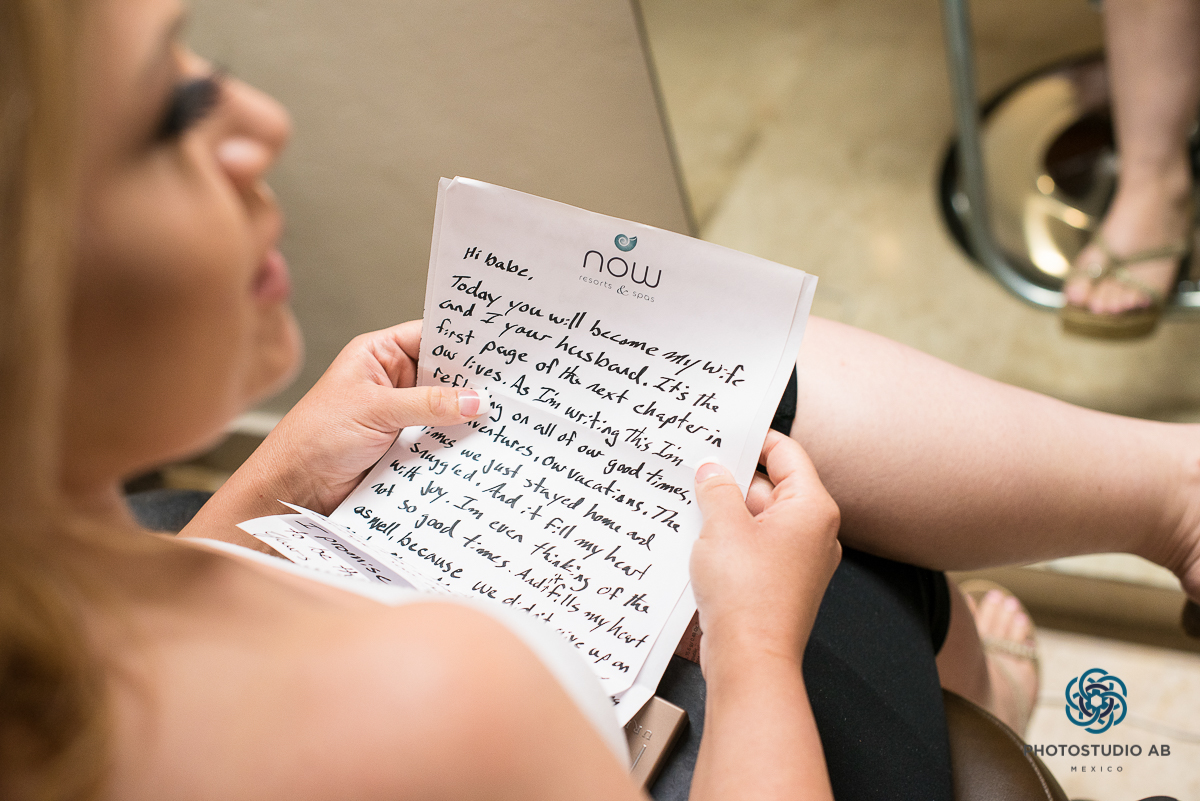 now
resorts & spas
Hi Babe,
Today you will become my wife
and I your husband. It's the
first page of the next chapter in
our lives. As I'm writing this I'm
on all of our good times,
our vacations. The
times we just stayed home and
snuggled. And it fill my heart
with joy. I'm even thinking of the
not so good times. And it fills my heart
as well, because we didn't give up on
I promise
PHOTOSTUDIO AB
MEXICO